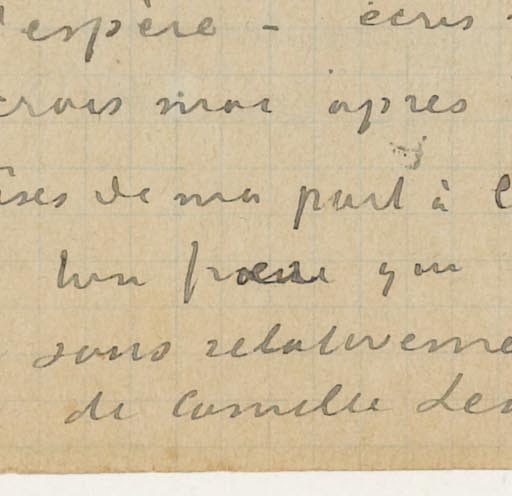 'espère - écris
crois moi après
ises de ma part à
ton frère qui
sous relativeme
de Camille Les